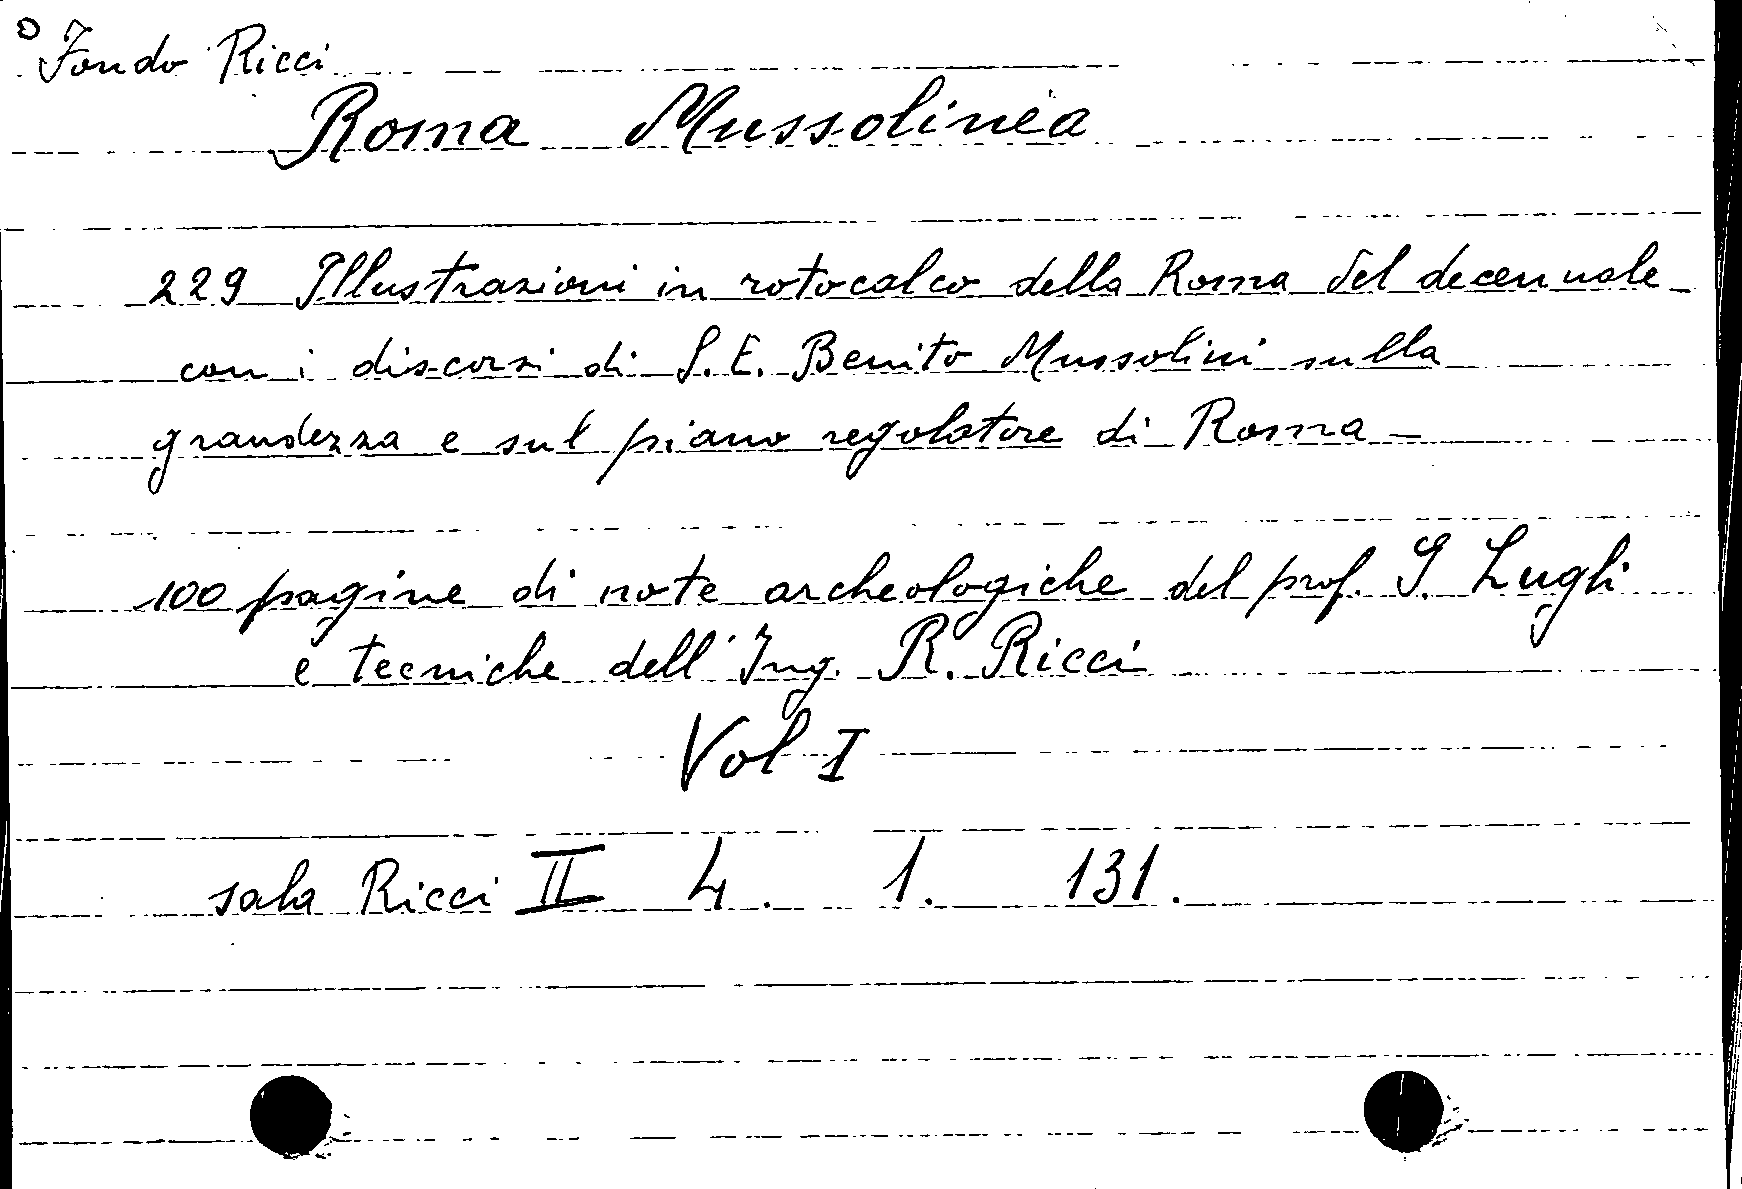 Fondo Ricci
Roma Mussolinea
229 Illustrazioni in rotocalco della Roma del decennale
con i discorsi di S. E. Benito Mussolini sulla
grandezza e sul piano regolatore di Roma -
100 pagine di note archeologiche del prof. G. Lugli
e tecniche dell'Ing. R. Ricci
Vol I
sala Ricci II 4. 1. 131.